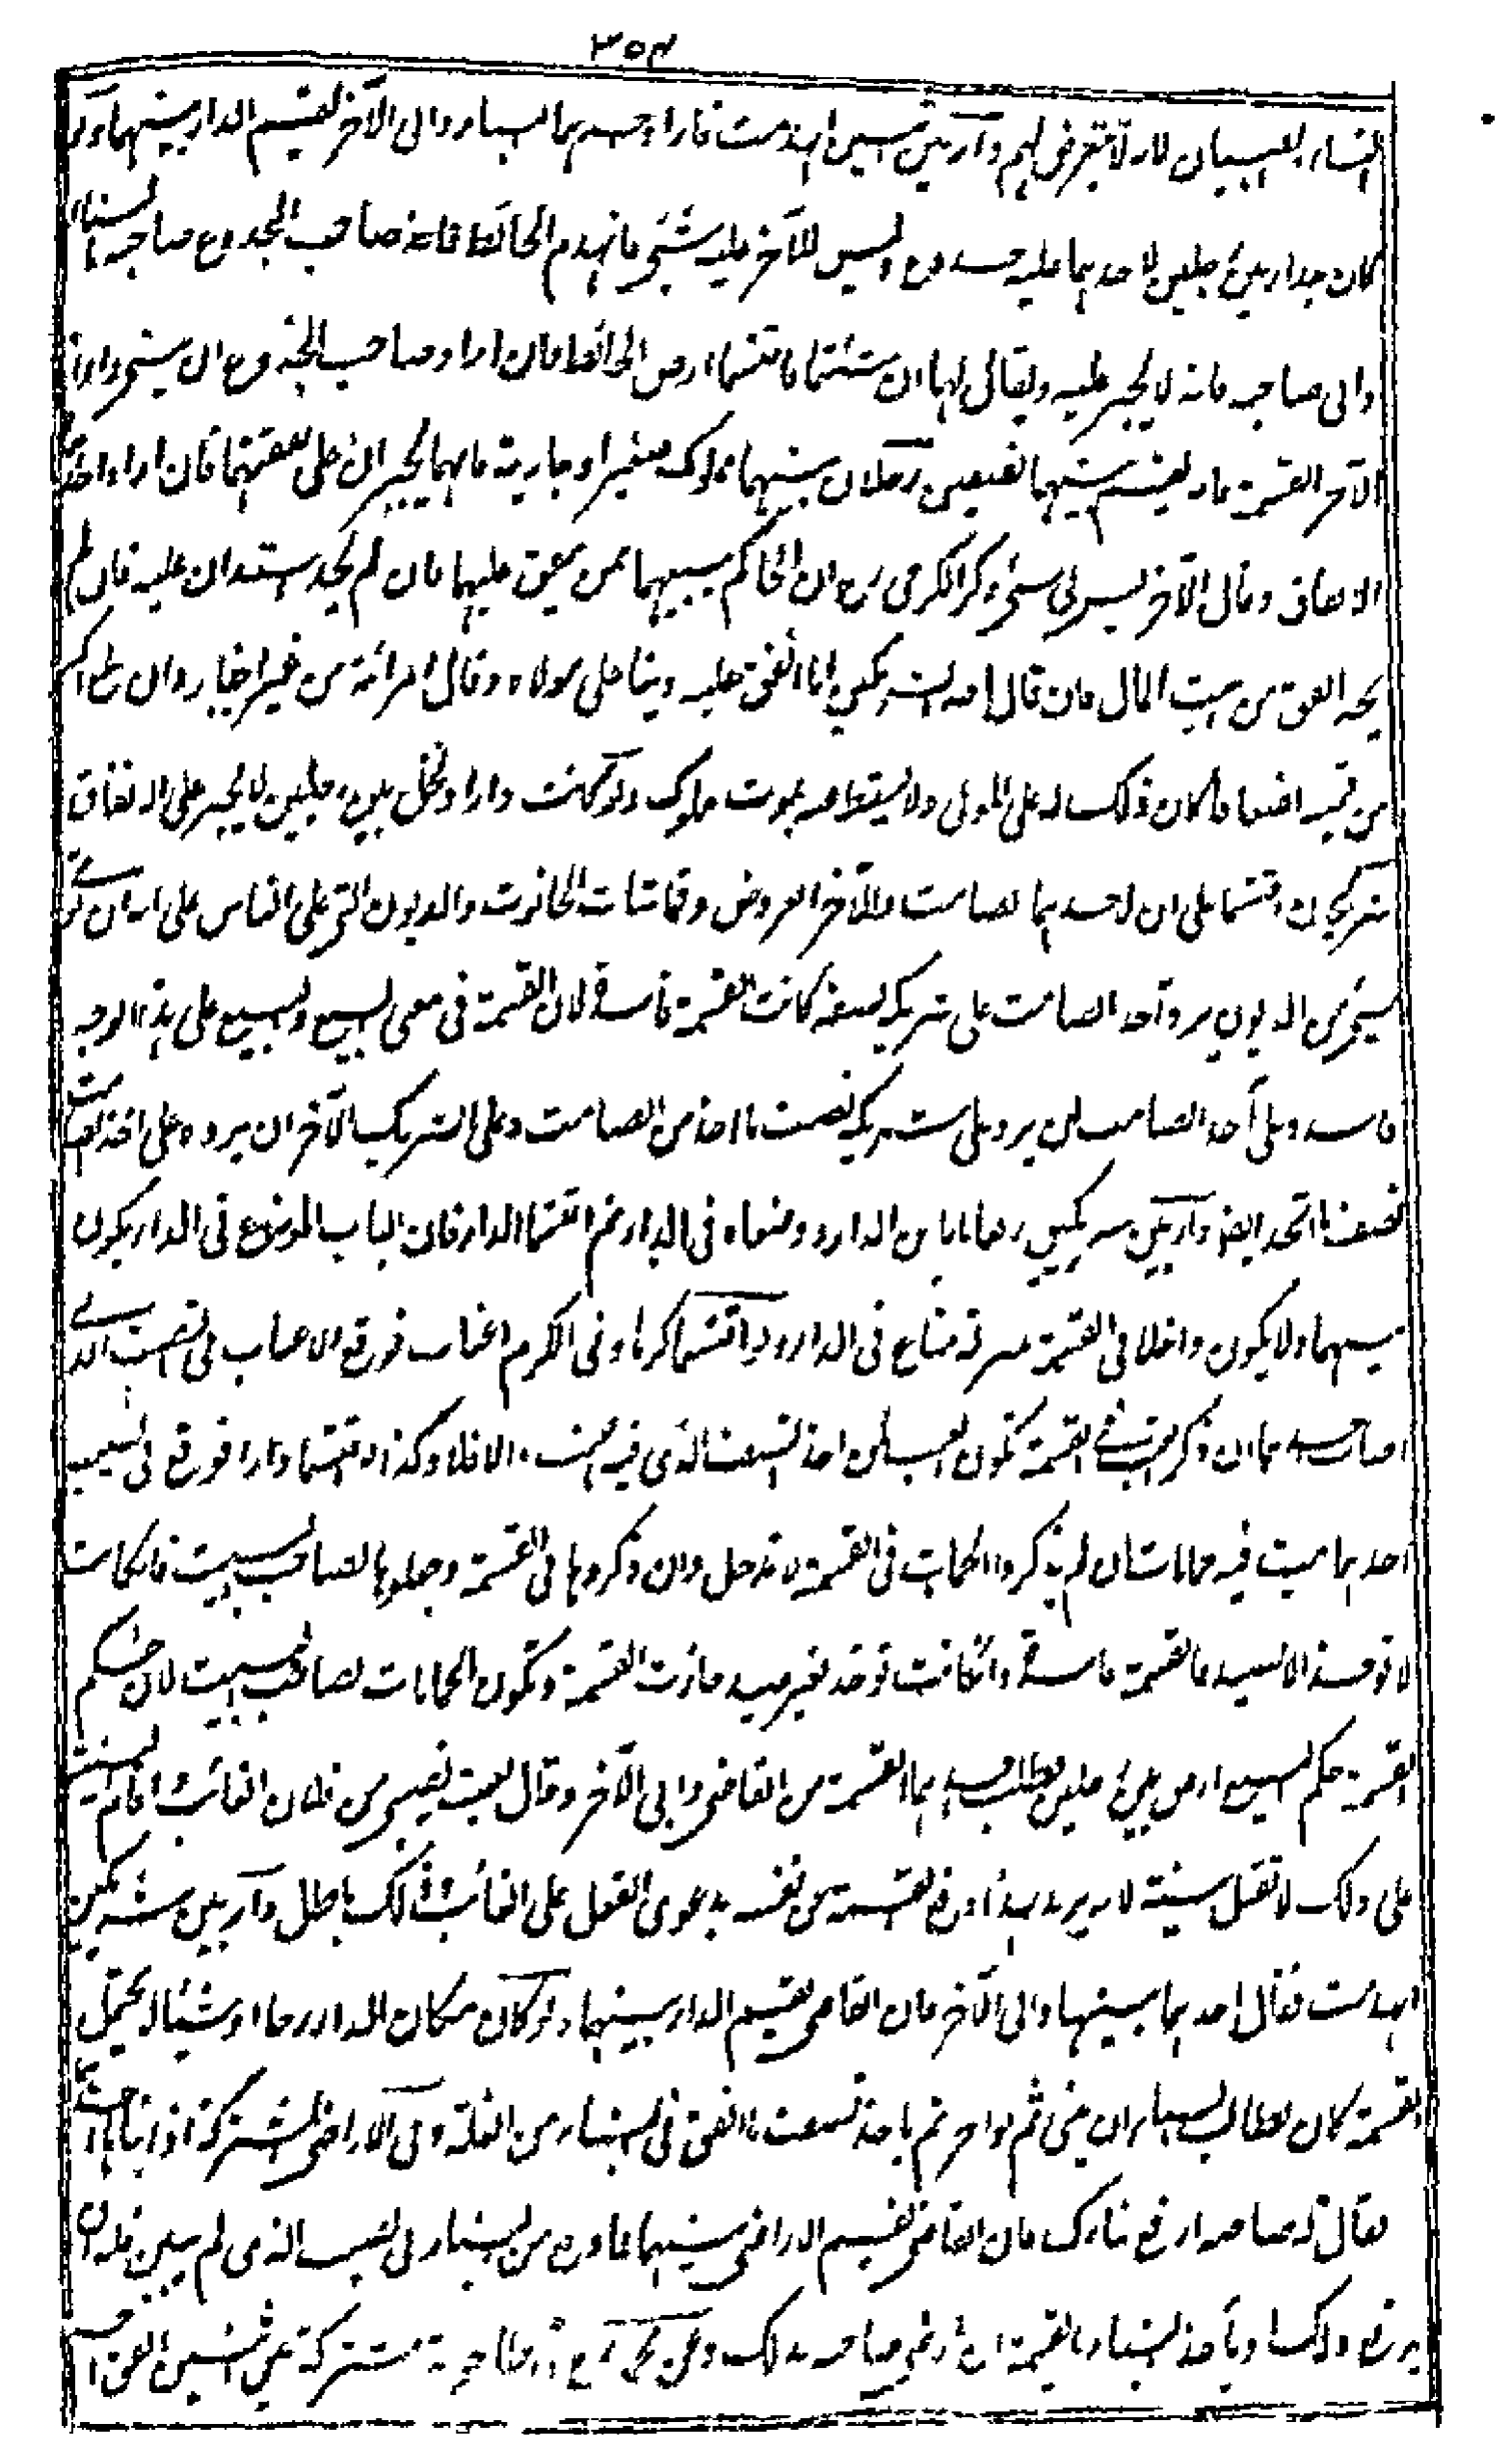 ٣٥٢
النساء والصبيان لانه لا يتعرض لهم دار بين اثنين انهدمت فاراد احدهما البناء وابى الآخر تقسم الدار بينهما ولو
كان جدار بين رجلين لاحدهما عليه جذوع وليس للآخر عليه شئ فانهدم الحائط فاخذ صاحب الجذوع صاحبه بالبناء
وابى صاحبه فانه لا يجبر عليه ويقال لهما ان شئتما فاقتسما ارض الحائط فان اراد صاحب الجذوع ان يبنى واراد
الآخر القسمة فانه يقسم بينهما نصفين رجلان بينهما مملوك صغير او جارية فانهما يجبران على نفقتهما فان اراد احدهما
الانفاق وقال الآخر ليس لى شئ ذكر الكرخى رح ان الحاكم يبيعهما ممن ينفق عليهما فان لم يجد استدان عليه فان لم
يجد انفق من بيت المال فان قال احد الشريكين انا انفق عليه دينا على مولاه وقال
من قيمته فكان ذلك له على المولى ولا يسقط بموت مملوك ولو كانت دارا ونخل بين رجلين لا يجبر على الانفاق
شريكان اقتسما على ان لاحدهما الصامت وللآخر العروض وقماشات الحانوت والديون التى على الناس على انه ان
شئ من الديون يرد آخذ الصامت على شريكه نصفه كانت القسمة فاسدة لان القسمة فى معنى البيع والبيع على هذا الوجه
فاسد وعلى آخذ الصامت ان يرد على شريكه نصف ما اخذ من الصامت وعلى الشريك الآخر ان يرده على آخذ الصامت
نصف ما اخذ ايضا دار بين شريكين رفعا بابا من الدار ووضعاه فى الدار ثم اقتسما الدار فان الباب الموضوع فى الدار يكون
بينهما ولا يكون داخلا فى القسمة بمنزلة متاع فى الدار ولو اقتسما كرما وفى الكرم اعناب فوقع الاعناب فى النصف الذى
اصاب احدهما ان ذكر العنب فى القسمة يكون العنب لمن اخذ النصف الذى فيه العنب والا فلا وكذا لو اقتسما دارا فوقع فى نصيب
احدهما بيت فيه حمامات ان لم يذكروا الحمامات فى القسمة لا تدخل وان ذكروها فى القسمة وجعلوها لصاحب البيت فان كانت
لا تؤخذ الا بصيد فالقسمة فاسدة وان كانت تؤخذ بغير صيد جازت القسمة وتكون الحمامات لصاحب البيت لان حكم
القسمة حكم البيع ارض بين رجلين طلب احدهما القسمة من القاضى وابى الآخر وقال بعت نصيبى من فلان الغائب واقام البينة
على ذلك لا تقبل بينته لانه يريد بهذا دفع القسمة عن نفسه بدعوى الفعل على الغائب وذلك باطل دار بين شريكين
انهدمت فقال احدهما نبنيها وابى الآخر فان القاضى يقسم الدار بينهما ولو كان مكان الدار رحا او شيئا لا يحتمل
القسمة كان لطالب البناء ان يبنى ثم يؤاجر ثم ياخذ نصف ما انفق فى البناء من الغلة وفى الاراضى المشتركة اذا
فقال له صاحبه ارفع بناءك فان القاضى يقسم الاراضى بينهما فما وقع من البناء فى نصيب الذى لم يبن فله ان
يرفع ذلك او يأخذ البناء بالقيمة ان رضى صاحبه بذلك وعن محمد رح مشتركة بين اثنين انفق